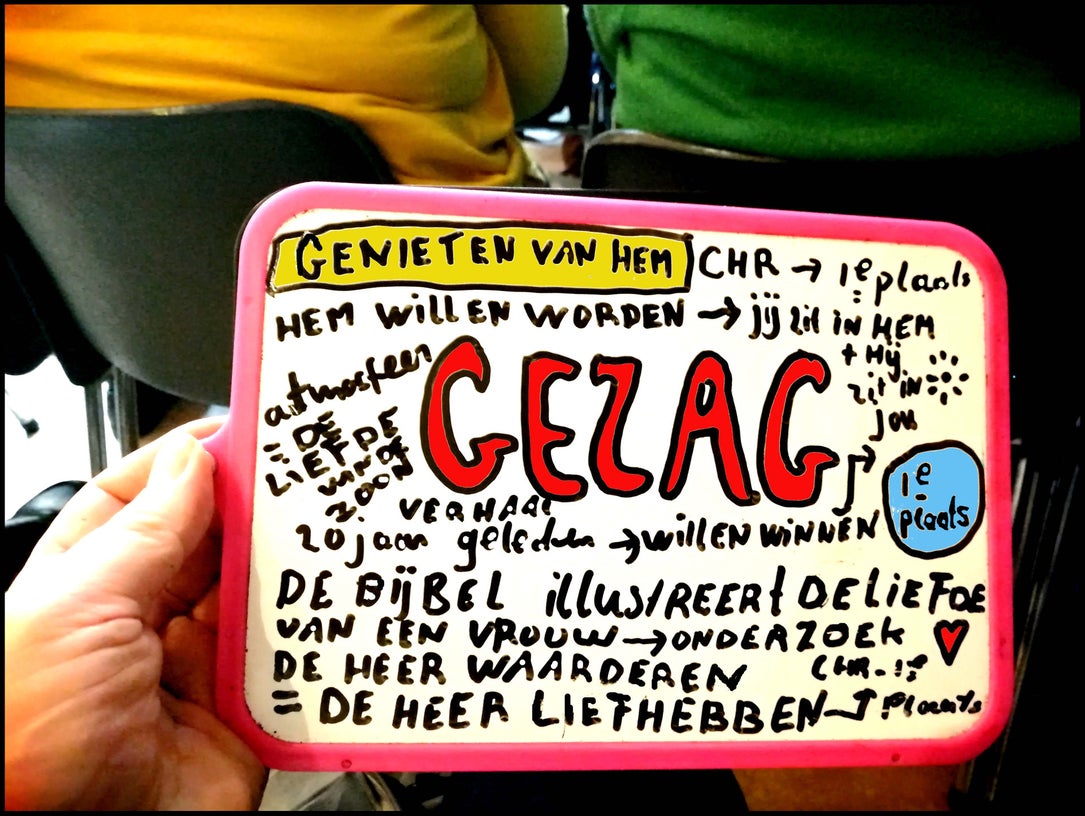 GENIETEN VAN HEM CHR → 1e plaats
HEM WILLEN WORDEN → jij zit in HEM
+ Hij
zit in
jou
atmosfeer
= DE
LIEFDE
VAN DE
ZOON
GEZAG
1e
plaats
VERHAAL
20 jaar geleden → willen WINNEN
DE BIJBEL illUSTREERT DE LIEFDE
VAN EEN VROUW → ONDERZOEK
DE HEER WAARDEREN CHR. 1e
= DE HEER LIEFHEBBEN → plaats